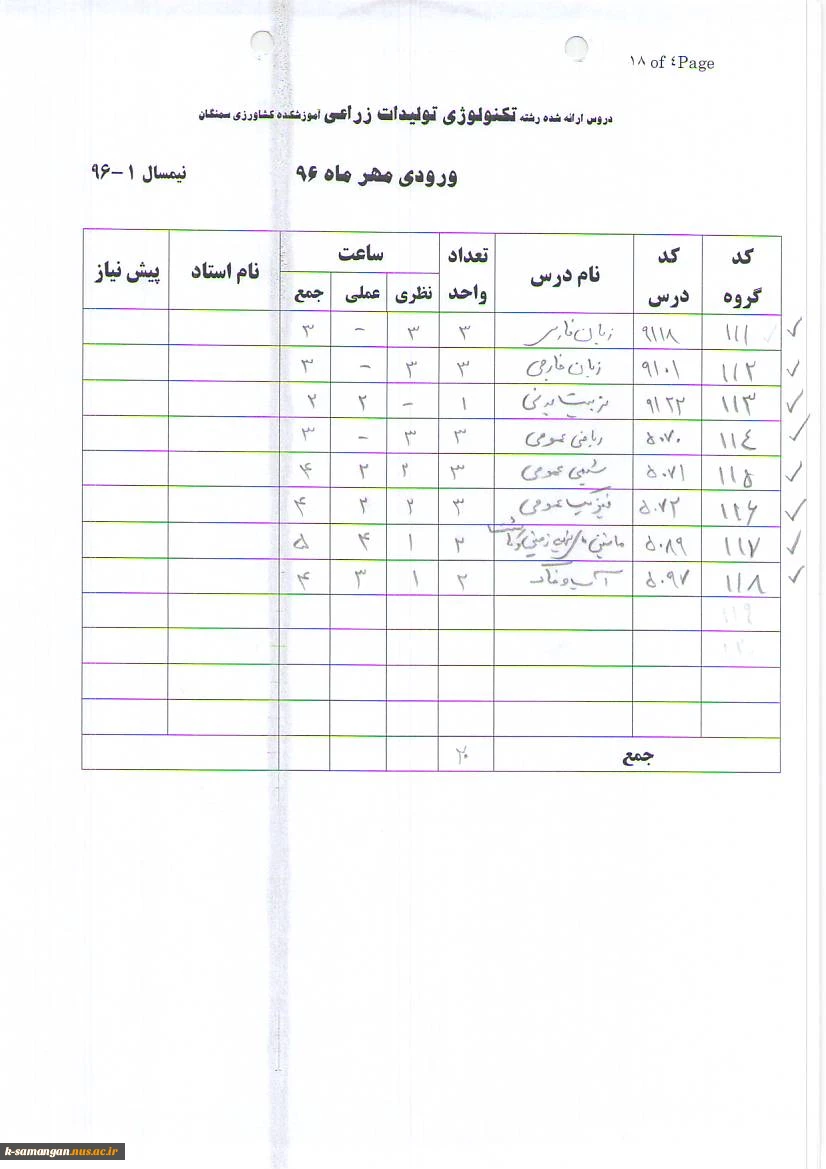 ۱۸ of ٤Page
دروس ارائه شده رشته تکنولوژی تولیدات زراعی آموزشکده کشاورزی سمنگان
ورودی مهر ماه ۹۶ نیمسال ۱-۹۶
کد گروه کد درس نام درس تعداد واحد ساعت نام استاد پیش نیاز
نظری عملی جمع
۱۱۱ ۹۱۱۸ زبان فارسی ۳ ۳ - ۳
۱۱۲ ۹۱۰۱ زبان خارجی ۳ ۳ - ۳
۱۱۳ ۹۱۲۲ تربیت بدنی ۱ - ۲ ۲
۱۱٤ ۵۰۷۰ ریاضی عمومی ۳ ۳ - ۳
۱۱۵ ۵۰۷۱ شیمی عمومی ۳ ۲ ۲ ۴
۱۱۶ ۵۰۷۲ فیزیک عمومی ۳ ۲ ۲ ۴
۱۱۷ ۵۰۸۹ ماشین های تهیه زمین و کاشت ۲ ۱ ۴ ۵
۱۱۸ ۵۰۹۷ آب و خاک ۲ ۱ ۳ ۴
۱۱۹
۱۲۰
جمع ۲۰
k-samangan.nus.ac.ir